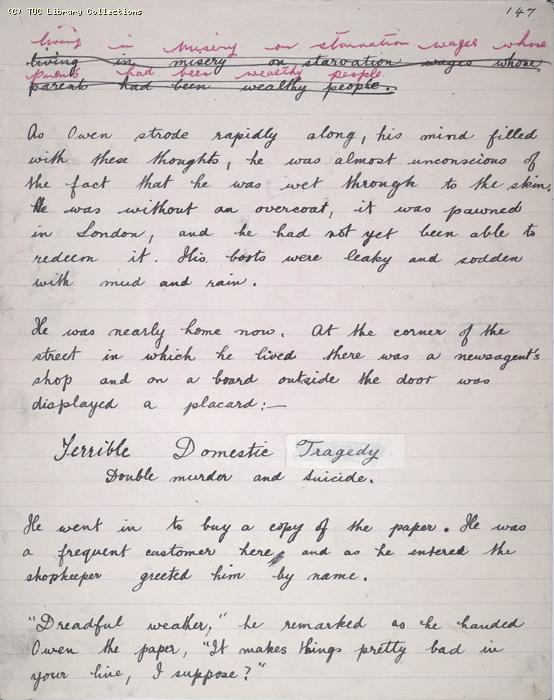 (C) TUC Library Collections
147
living in misery on starvation wages whose
living in misery on starvation wages whose
parents had been wealthy people.
parents had been wealthy people.
As Owen strode rapidly along, his mind filled
with these thoughts, he was almost unconscious of
the fact that he was wet through to the skin.
He was without an overcoat, it was pawned
in London, and he had not yet been able to
redeem it. His boots were leaky and sodden
with mud and rain.
He was nearly home now. At the corner of the
street in which he lived there was a newsagent's
shop and on a board outside the door was
displayed a placard:—
Terrible Domestic Tragedy
Double murder and suicide.
He went in to buy a copy of the paper. He was
a frequent customer here, and as he entered the
shopkeeper greeted him by name.
"Dreadful weather," he remarked as he handed
Owen the paper, "It makes things pretty bad in
your line, I suppose?"